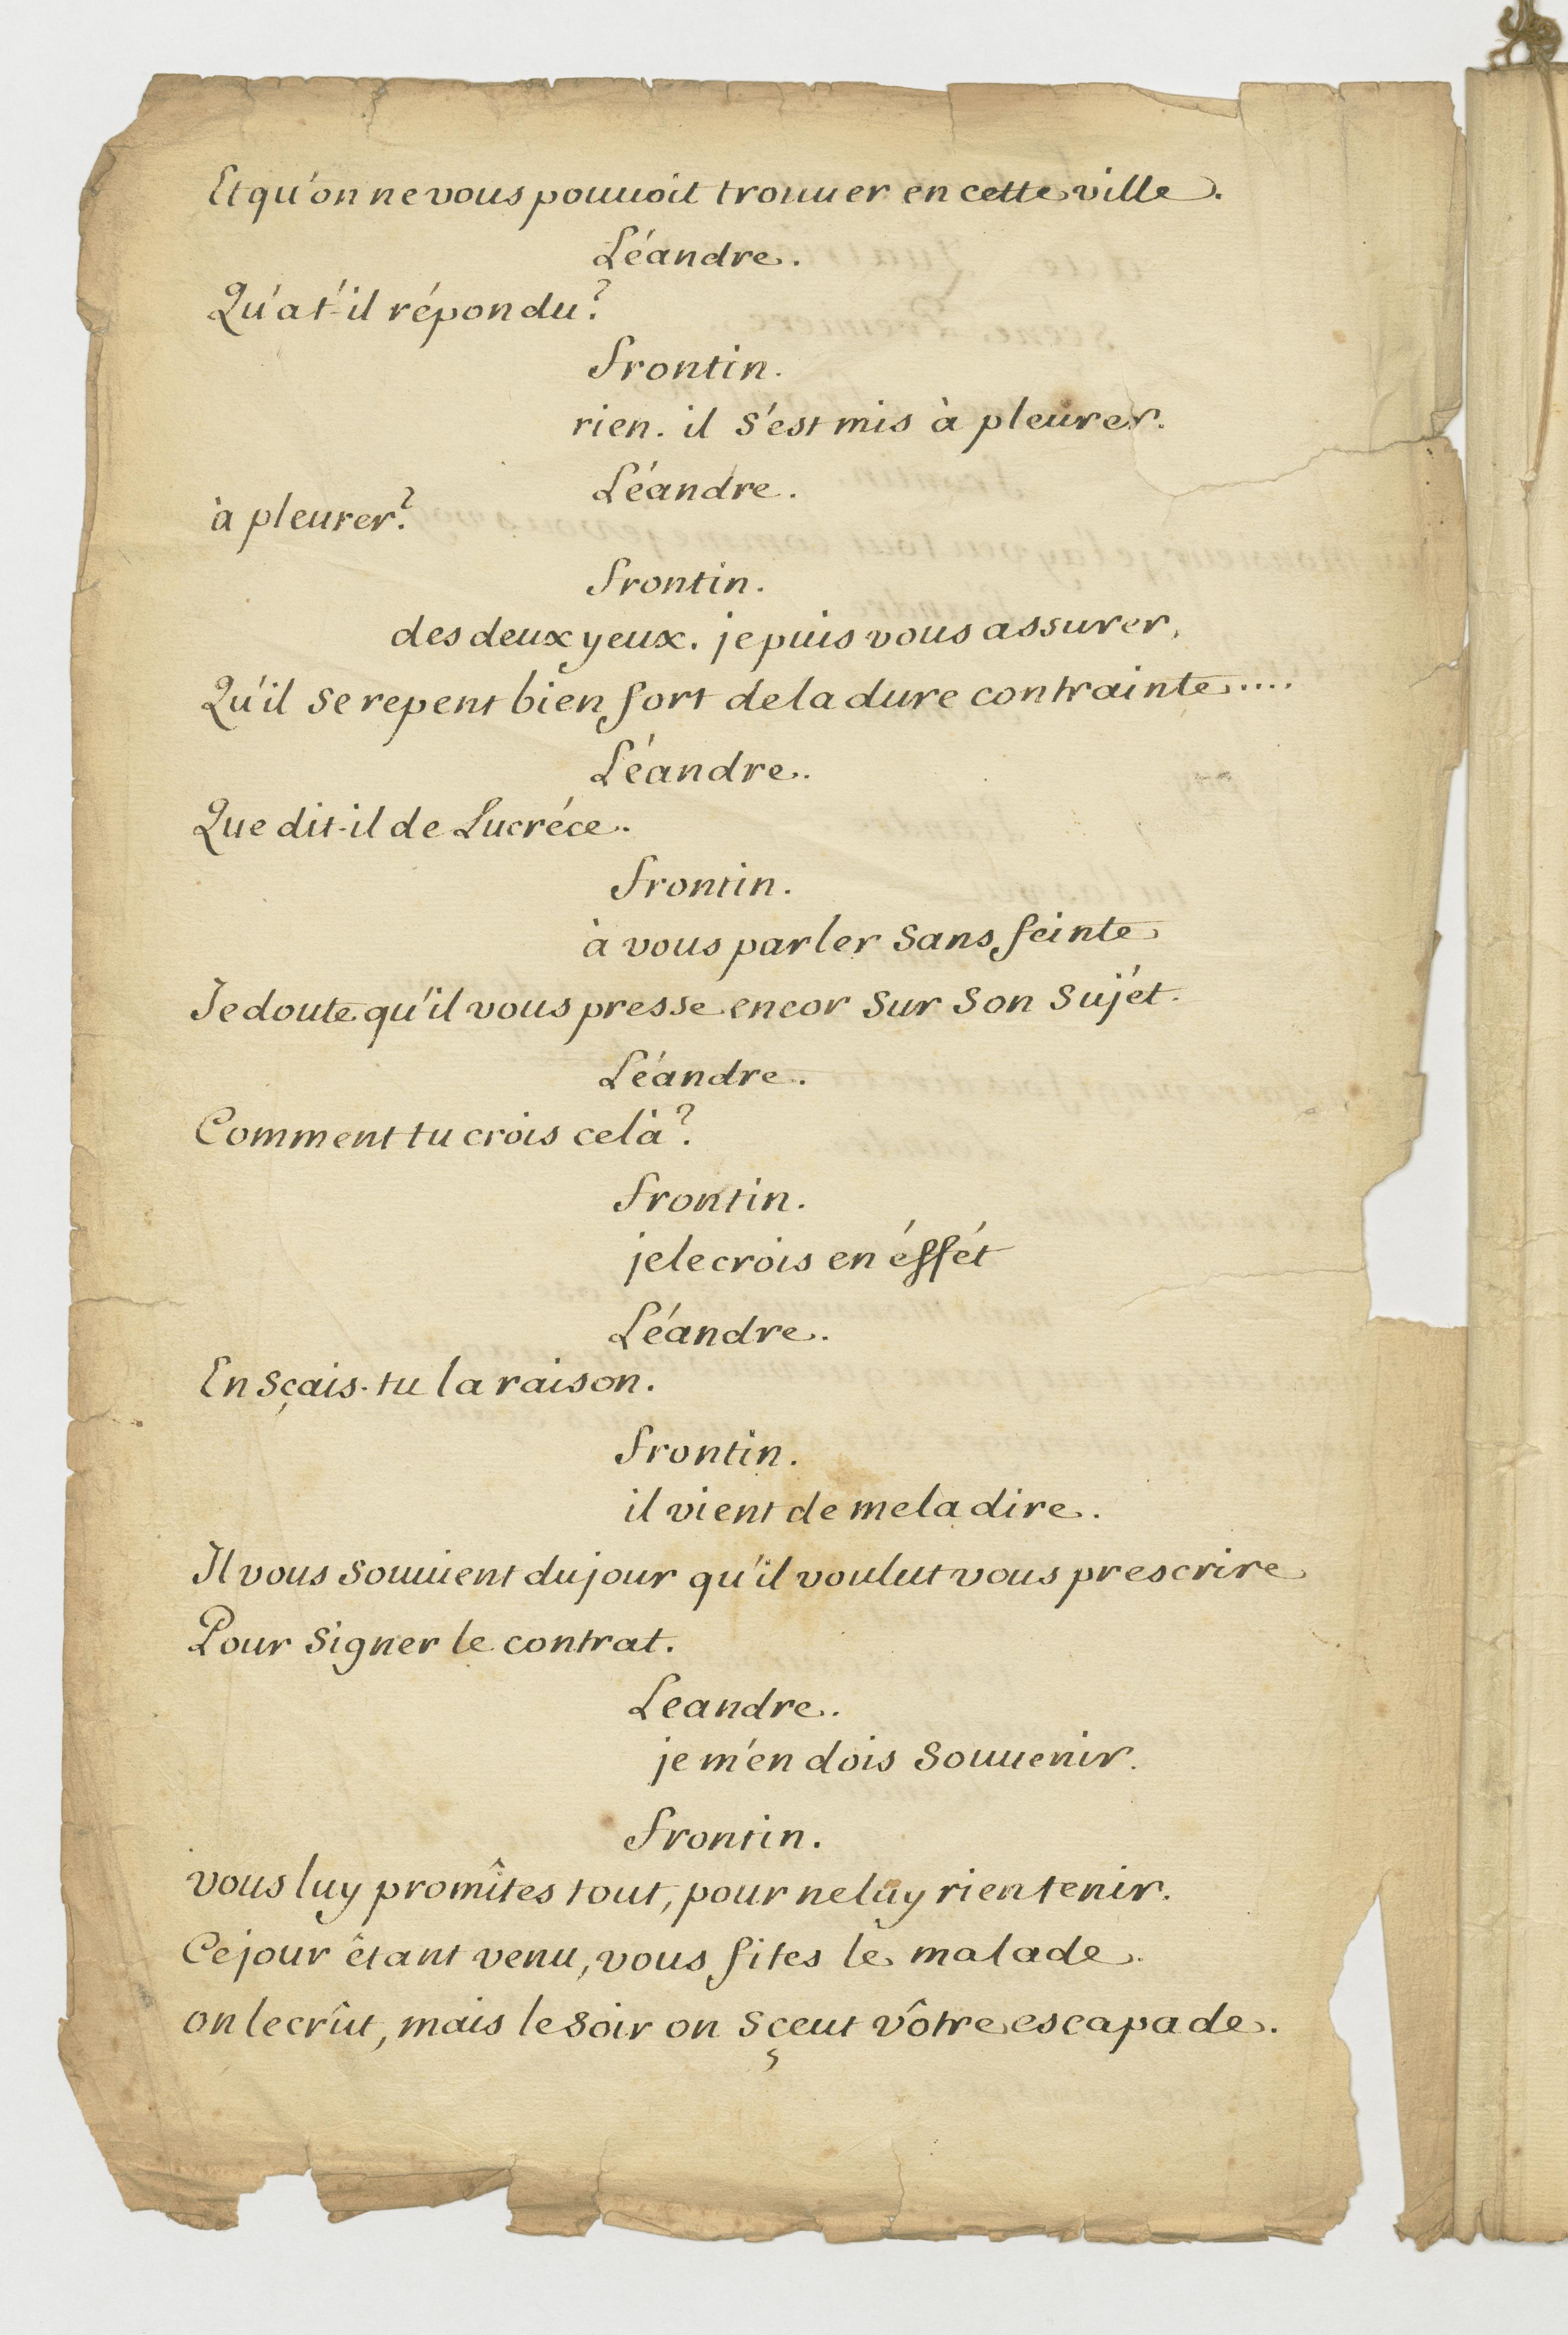 Et qu'on ne vous pouuoit trouuer en cette ville.
Léandre.
Qu'a t'-il répondu?
frontin.
rien. il s'est mis à pleurer.
Léandre.
à pleurer?
frontin.
des deux yeux. je puis vous assurer,
Qu'il se repent bien fort de la dure contrainte....
Léandre.
Que dit-il de Lucréce.
frontin.
à vous parler sans feinte
Je doute qu'il vous presse encor sur son sujét.
Léandre.
Comment tu crois celà?
frontin.
je le crois en éffét
Léandre.
En sçais-tu la raison.
frontin.
il vient de me la dire.
Il vous souuient du jour qu'il voulut vous prescrire
Pour signer le contrat.
Leandre.
je m'en dois souuenir.
frontin.
vous luy promîtes tout, pour ne luy rien tenir.
Ce jour êtant venu, vous fites le malade.
on le crût, mais le soir on sçeut vôtre escapade.